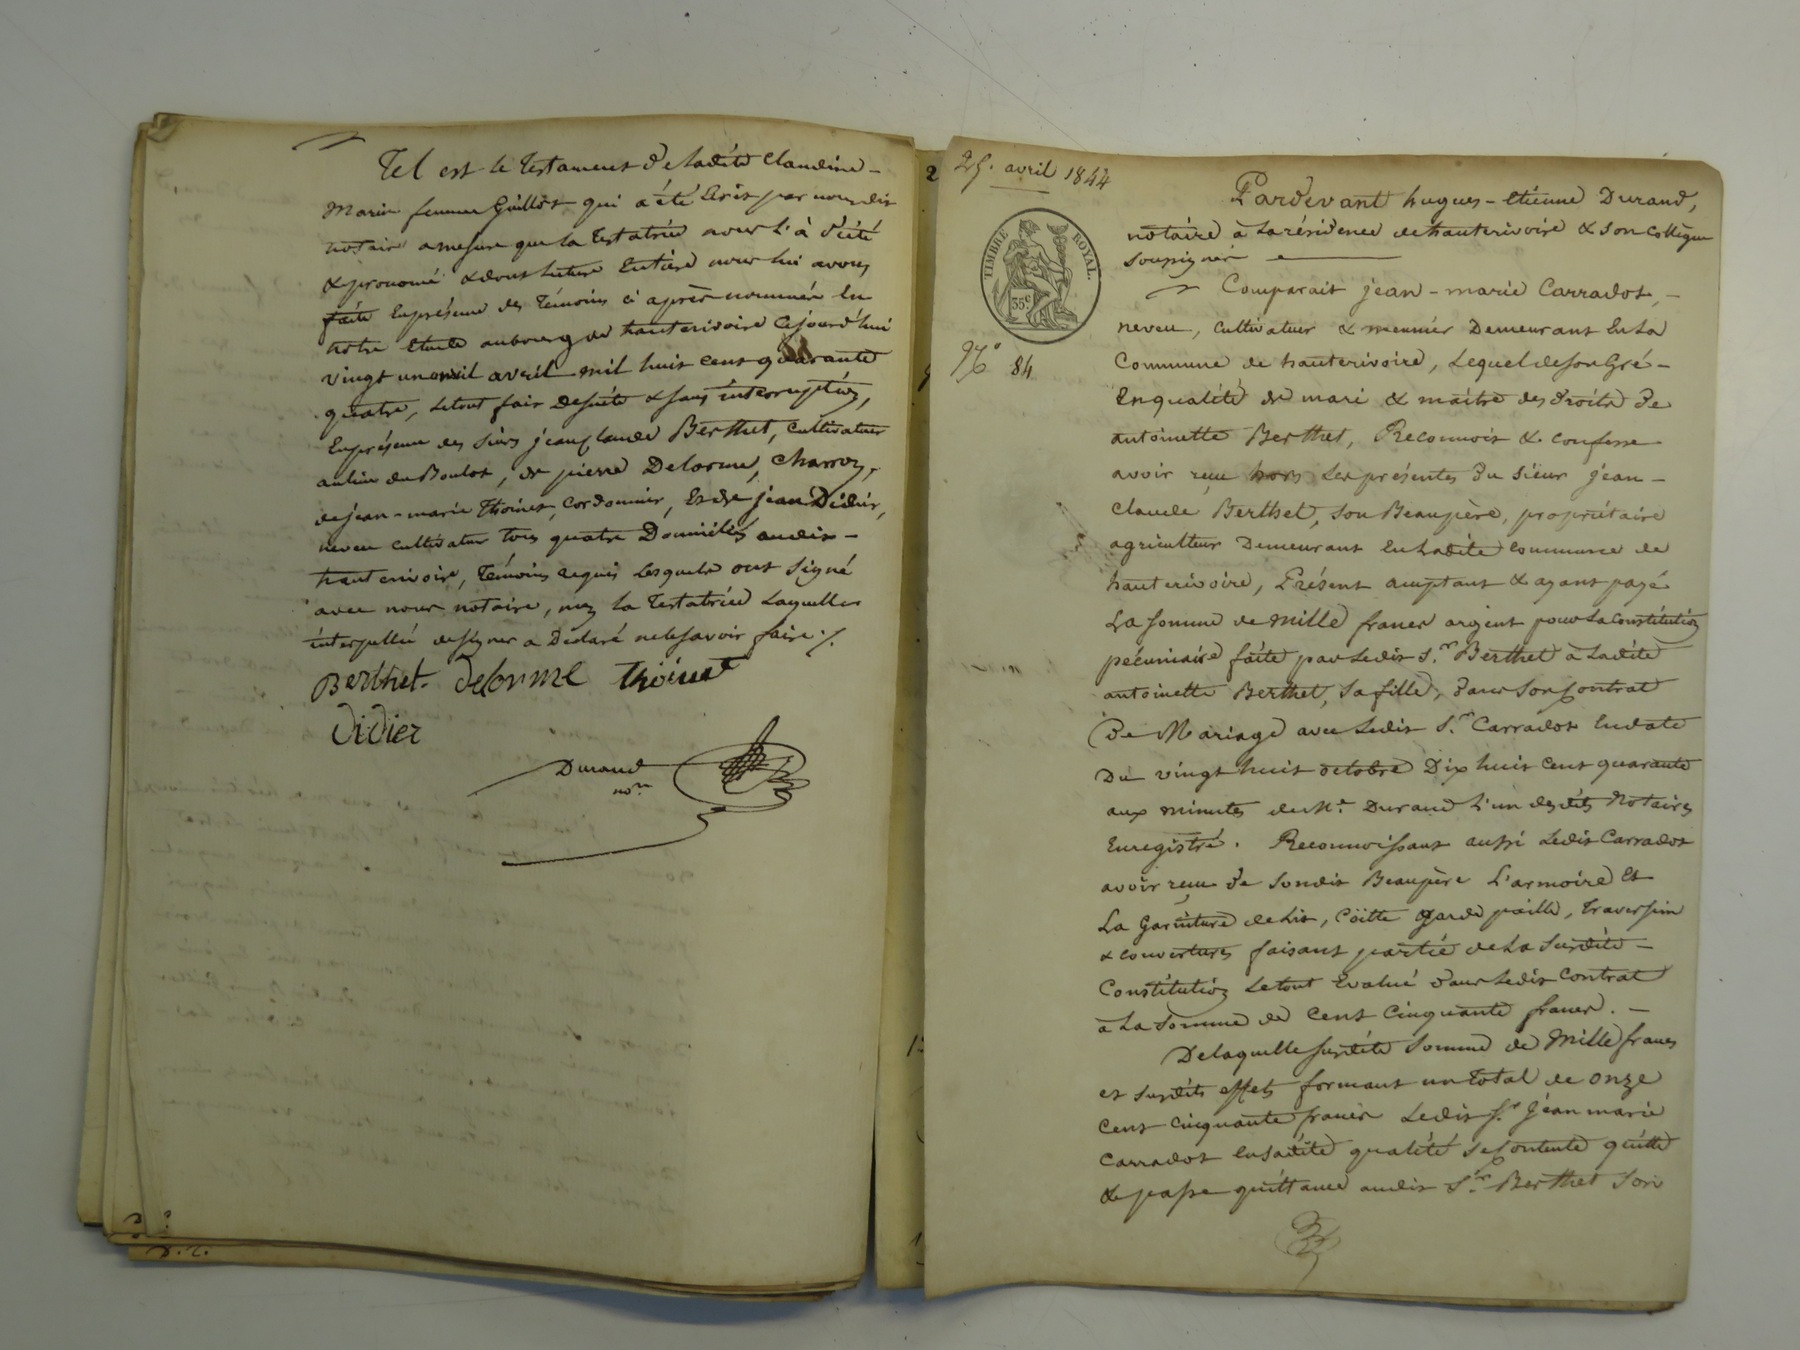 Tel est le testament de ladite Claudine -
Marie femme Guillot qui a été écrit par nous dit
notaire amesure que la testatrice nous l'a dicté
& prononcé & dont lecture entière nous lui avons
faite en présence des témoins ci après nommés en
notre etude au bourg de hauterivoire cejourd'hui
vingt un avril mil huit cent quarante
quatre, le tout fait desuite & sans interruption,
en présence des sieurs jean Claude Berthet, cultivateur
au lieu du Boulot, de pierre Delorme, charron,
de jean-marie Thoinet, cordonnier, et de jean Didier,
neveu cultivateur tous quatre Domiciliés audit -
hauterivoire, témoins requis lesquels ont signé
avec nous notaire, non la testatrice laquelle
interpellée de signer a Déclaré ne le savoir faire ./.
Berthet. delorme thoinet
didier
Durand
nore
2
25. avril 1844
TIMBRE ROYAL.
35c
84
Pardevant hugues-etiènne Durand,
notaire à la résidence de hauterivoire & son collègue
soussignés
Comparait jean-marie Carradot, -
neveu, cultivateur & meunier Demeurant en la
Commune de hauterivoire, Lequel de son Gré -
en qualité de mari & maître des droits de
antoinette Berthet, Reconnoit & confesse
avoir reçu hors les présentes du sieur jean -
Claude Berthet, son Beaupère, propriétaire
agriculteur Demeurant en ladite commune de
hauterivoire, Présent acceptant & ayant payé
La somme de mille francs argent pour la constitution
pécuniaire faite par ledit S.r Berthet à ladite
antoinette Berthet, sa fille, dans son contrat
De Mariage avec ledit S.r Carradot en date
Du vingt huit octobre Dix huit cent quarante
aux minutes de Me Durand l'un desdits Notaires
Enregistré. Reconnoissant aussi ledit Carradot
avoir reçu de sondit Beaupère L'armoire et
La Garniture de lit, Coïtte garde paille, traversin
& couvertures faisant partie de la susdite -
Constitution le tout évalué dans ledit contrat
à la somme de cent cinquante francs. -
De laquelle susdite somme de Mille francs
et susdits effets formant un total de onze
cent cinquante francs ledit S.r jean marie
Carradot en sadite qualité se contente quitte
& passe quittance audit S.r Berthet son